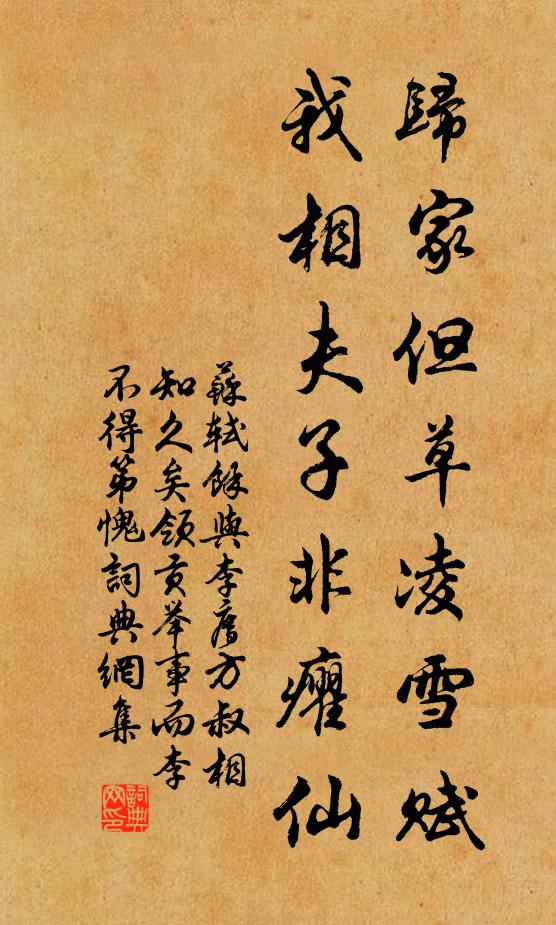 歸家但草凌雪賦
我相夫子非癯仙
蘇軾餘與李廌方叔相
知久矣領貢舉事而李
不得第愧詞典網集
詞典網印